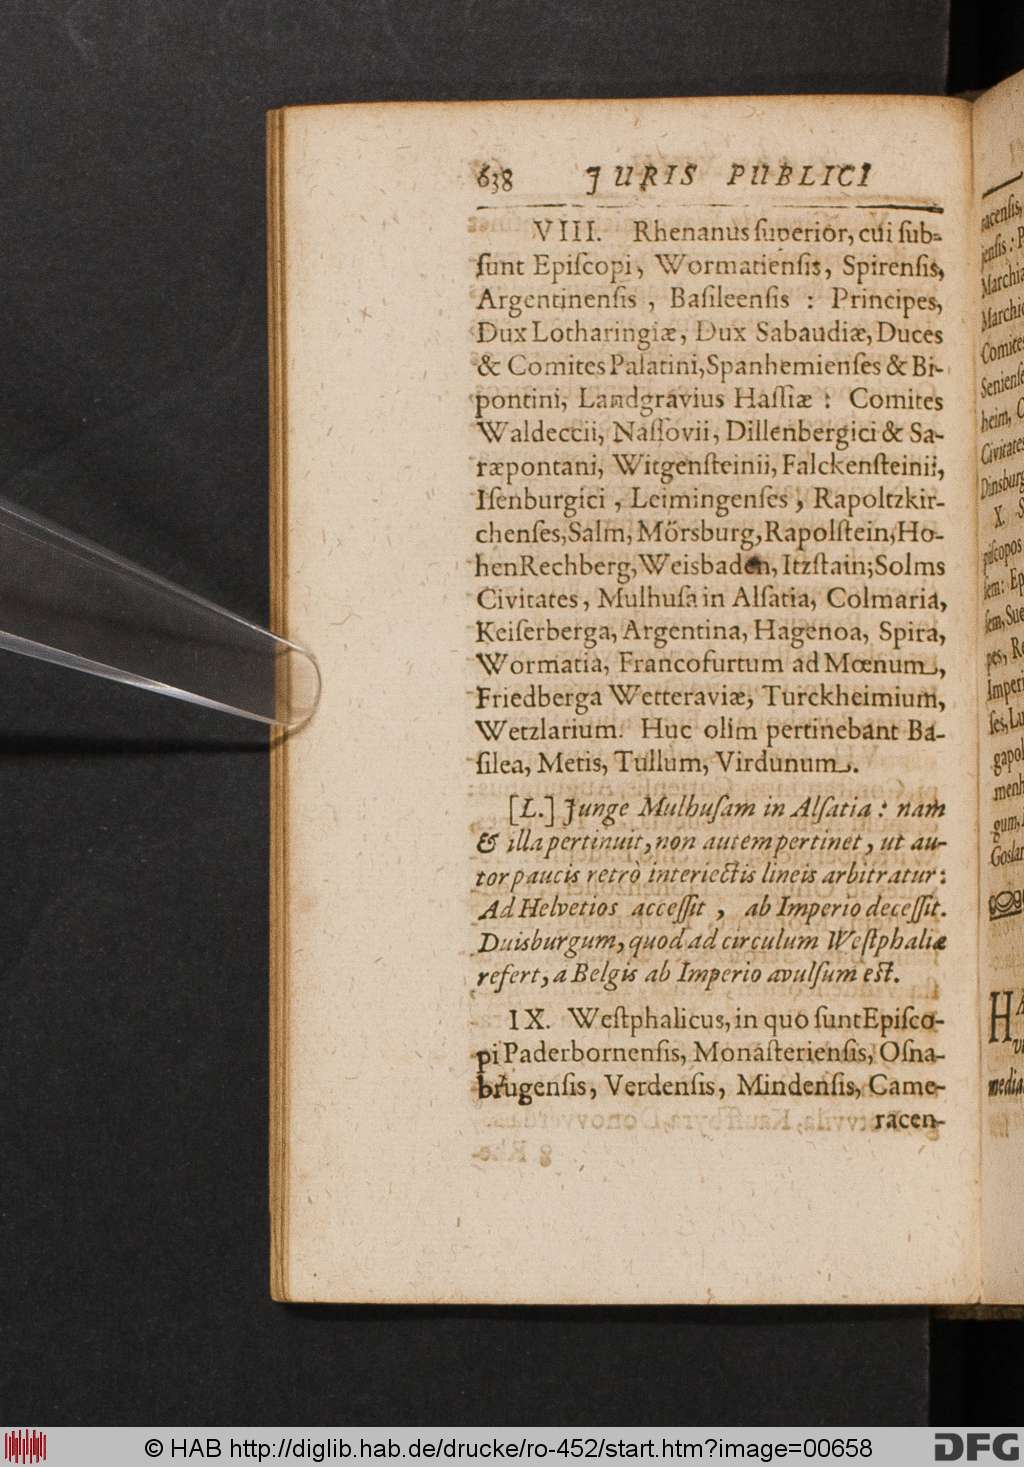 638 JURIS PUBLICI
VIII. Rhenanus ſuperior, cui ſub-
ſunt Epiſcopi, Wormatienſis, Spirenſis,
Argentinenſis, Baſileenſis : Principes,
Dux Lotharingiæ, Dux Sabaudiæ, Duces
& Comites Palatini, Spanhemienſes & Bi-
pontini, Landgravius Haſſiæ : Comites
Waldeccii, Naſſovii, Dillenbergici & Sa-
ræpontani, Witgenſteinii, Falckenſteinii,
Iſenburgici, Leimingenſes, Rapoltzkir-
chenſes, Salm, Mörsburg, Rapolſtein, Ho-
hen Rechberg, Weisbaden, Itzſtain; Solms
Civitates, Mulhuſa in Alſatia, Colmaria,
Keiſerberga, Argentina, Hagenoa, Spira,
Wormatia, Francofurtum ad Mœnum,
Friedberga Wetteraviæ, Turckheimium,
Wetzlarium. Huc olim pertinebant Ba-
ſilea, Metis, Tullum, Virdunum.
[L.] Junge Mulhuſam in Alſatia : nam
& illa pertinuit, non autem pertinet, ut au-
tor paucis retrò interiectis lineis arbitratur :
Ad Helvetios acceſſit, ab Imperio deceſſit.
Duisburgum, quod ad circulum Weſtphaliæ
refert, a Belgis ab Imperio avulſum eſt.
IX. Weſtphalicus, in quo ſunt Epiſco-
pi Paderbornenſis, Monaſterienſis, Oſna-
brugenſis, Verdenſis, Mindenſis, Came-
racen-
racenſis,
jenſis : P
Marchia
Marchio
Comites
Senienſe
heim, C
Civitates
Dinsburg
X. S
piſcopos
ſem : Ep
ſem, Sue
pes, Re
Imperi
ſes, Lu
gapol
menh
gum,
Goslar
media
© HAB http://diglib.hab.de/drucke/ro-452/start.htm?image=00658
DFG